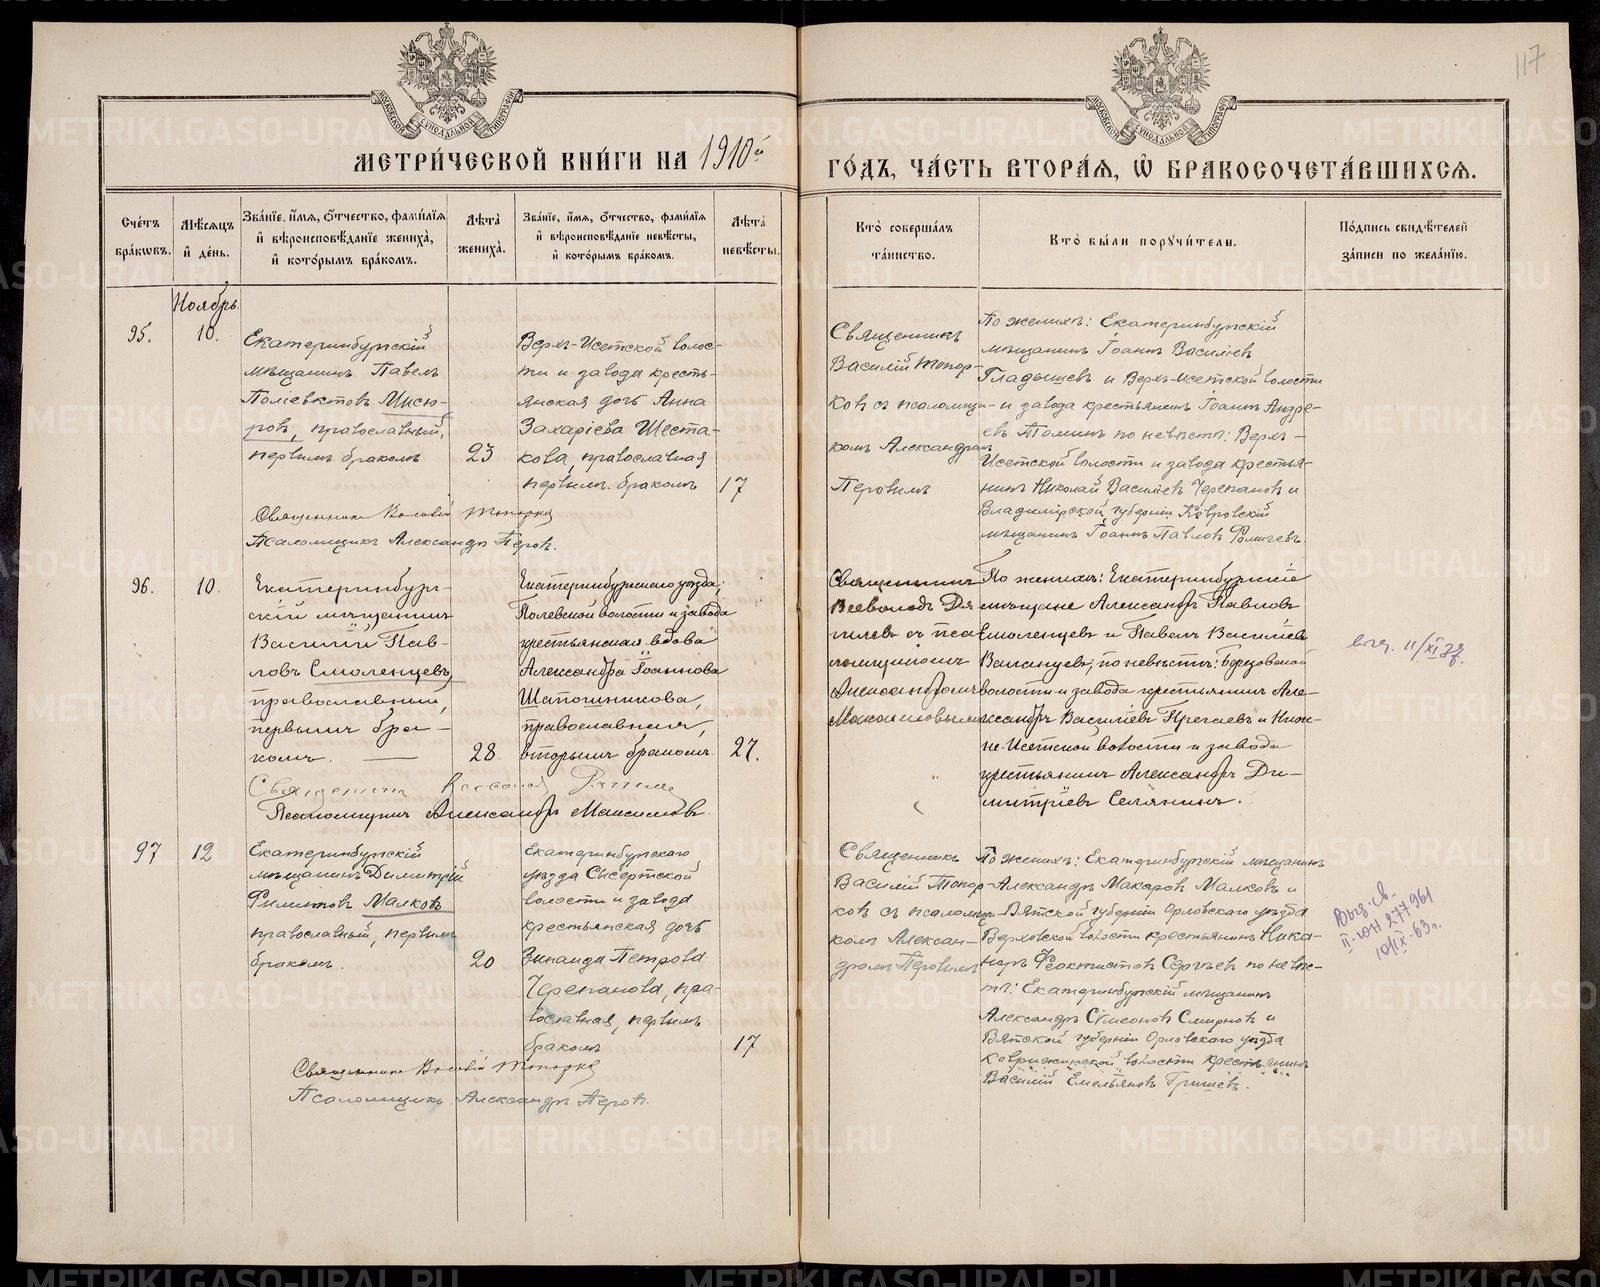 117
МЕТРИ́ЧЕСКОЙ КНИ́ГИ НА 1910й ГО́ДЪ, ЧА́СТЬ ВТОРА́Я, Ѽ БРАКОСОЧЕТА́ВШИХСЯ.
МОСКОВСКОЙ СѴНОДАЛЬНОЙ ТИПОГРАФІИ
МОСКОВСКОЙ СѴНОДАЛЬНОЙ ТИПОГРАФІИ
Сче́тъ бра́кωвъ.
Мѣ́сяцъ и҆ де́нь.
Зва́нїе, и҆́мя, ѻ҆́тчество, фами́лїя
и҆ вѣроисповѣ́данїе жениха̀,
и҆ кото́рымъ бра́комъ.
Лѣ́та жениха̀.
Зва́нїе, и҆́мя, ѻ҆́тчество, фами́лїя
и҆ вѣроисповѣ́данїе невѣ́сты,
и҆ кото́рымъ бра́комъ.
Лѣ́та невѣ́сты.
Кто̀ соверша́лъ
та́инство.
Кто̀ бы́ли поручи́тели.
По́дпись свидѣ́телей
за́писи по жела́нїю.
Ноябрь
95.
10.
Екатеринбургскій
мѣщанинъ Павелъ
Поліевктовъ Мисю-
ровъ, православный,
первымъ бракомъ
23
Верхъ-Исетской волос-
ти и завода кресть-
янская дочь Анна
Захаріева Шеста-
кова, православная
первымъ бракомъ
17
Священникъ
Василій Топор-
ковъ съ псаломщи-
комъ Александромъ
Перовымъ
По женихѣ: Екатеринбургскій
мѣщанинъ Іоаннъ Василіевъ
Гладышевъ и Верхъ-Исетской волости
и завода крестьянинъ Іоаннъ Андре-
евъ Томинъ по невѣстѣ: Верхъ-
Исетской волости и завода крестья-
нинъ Николай Василіевъ Черепановъ и
Владимірской губерніи Ковровскій
мѣщанинъ Іоаннъ Павловъ
Священникъ Василій Топорковъ
Псаломщикъ Александръ Перовъ.
96.
10.
Екатеринбург-
скій мѣщанинъ
Василій Пав-
ловъ Смоленцевъ,
православный,
первымъ бра-
комъ.
28.
Екатеринбургскаго уѣзда,
Полевской волости и завода
крестьянская вдова
Александра Іоаннова
Шапошникова,
православная,
вторымъ бракомъ
27.
Священникъ
Всеволодъ Дя
гилевъ съ пса
ломщикомъ
Александромъ
Максимовымъ
По женихѣ: Екатеринбургскіе
мѣщане Александръ Павловъ
Смоленцевъ и Павелъ Василіевъ
по невѣстѣ: Березовской
волости и завода крестьянинъ Але-
ксандръ Василіевъ и Ниж-
не-Исетской волости и завода
крестьянинъ Александръ Ди-
митріевъ Селянинъ.
выд. 11/XI
Священникъ Всеволодъ
Псаломщикъ Александръ Максимовъ
97
12
Екатеринбургскій
мѣщанинъ Димитрій
Филипповъ Малковъ
православный, первымъ
бракомъ.
20
Екатеринбургскаго
уѣзда Сысертской
волости и завода
крестьянская дочь
Зинаида Петрова
Черепанова, пра-
вославная, первымъ
бракомъ
17
Священникъ
Василій Топор-
ковъ съ псаломщи-
комъ Алексан-
дромъ Перовымъ
По женихѣ: Екатеринбургскій мѣщанинъ
Александръ Макаровъ Малковъ и
Вятской губерніи Орловскаго уѣзда
Верховской волости крестьянинъ Ника-
норъ Феоктистовъ Сергѣевъ по невѣс-
тѣ: Екатеринбургскій мѣщанинъ
Александръ Сѵмеоновъ Смирновъ и
Вятской губерніи Орловскаго уѣзда
волости крестьянинъ
Василій Емельяновъ Гришевъ.
Выд. св.
II-ЮН 277961
10/IX-63г.
Священникъ Василій Топорковъ
Псаломщикъ Александръ Перовъ.
METRIKI.GASO-URAL.RU